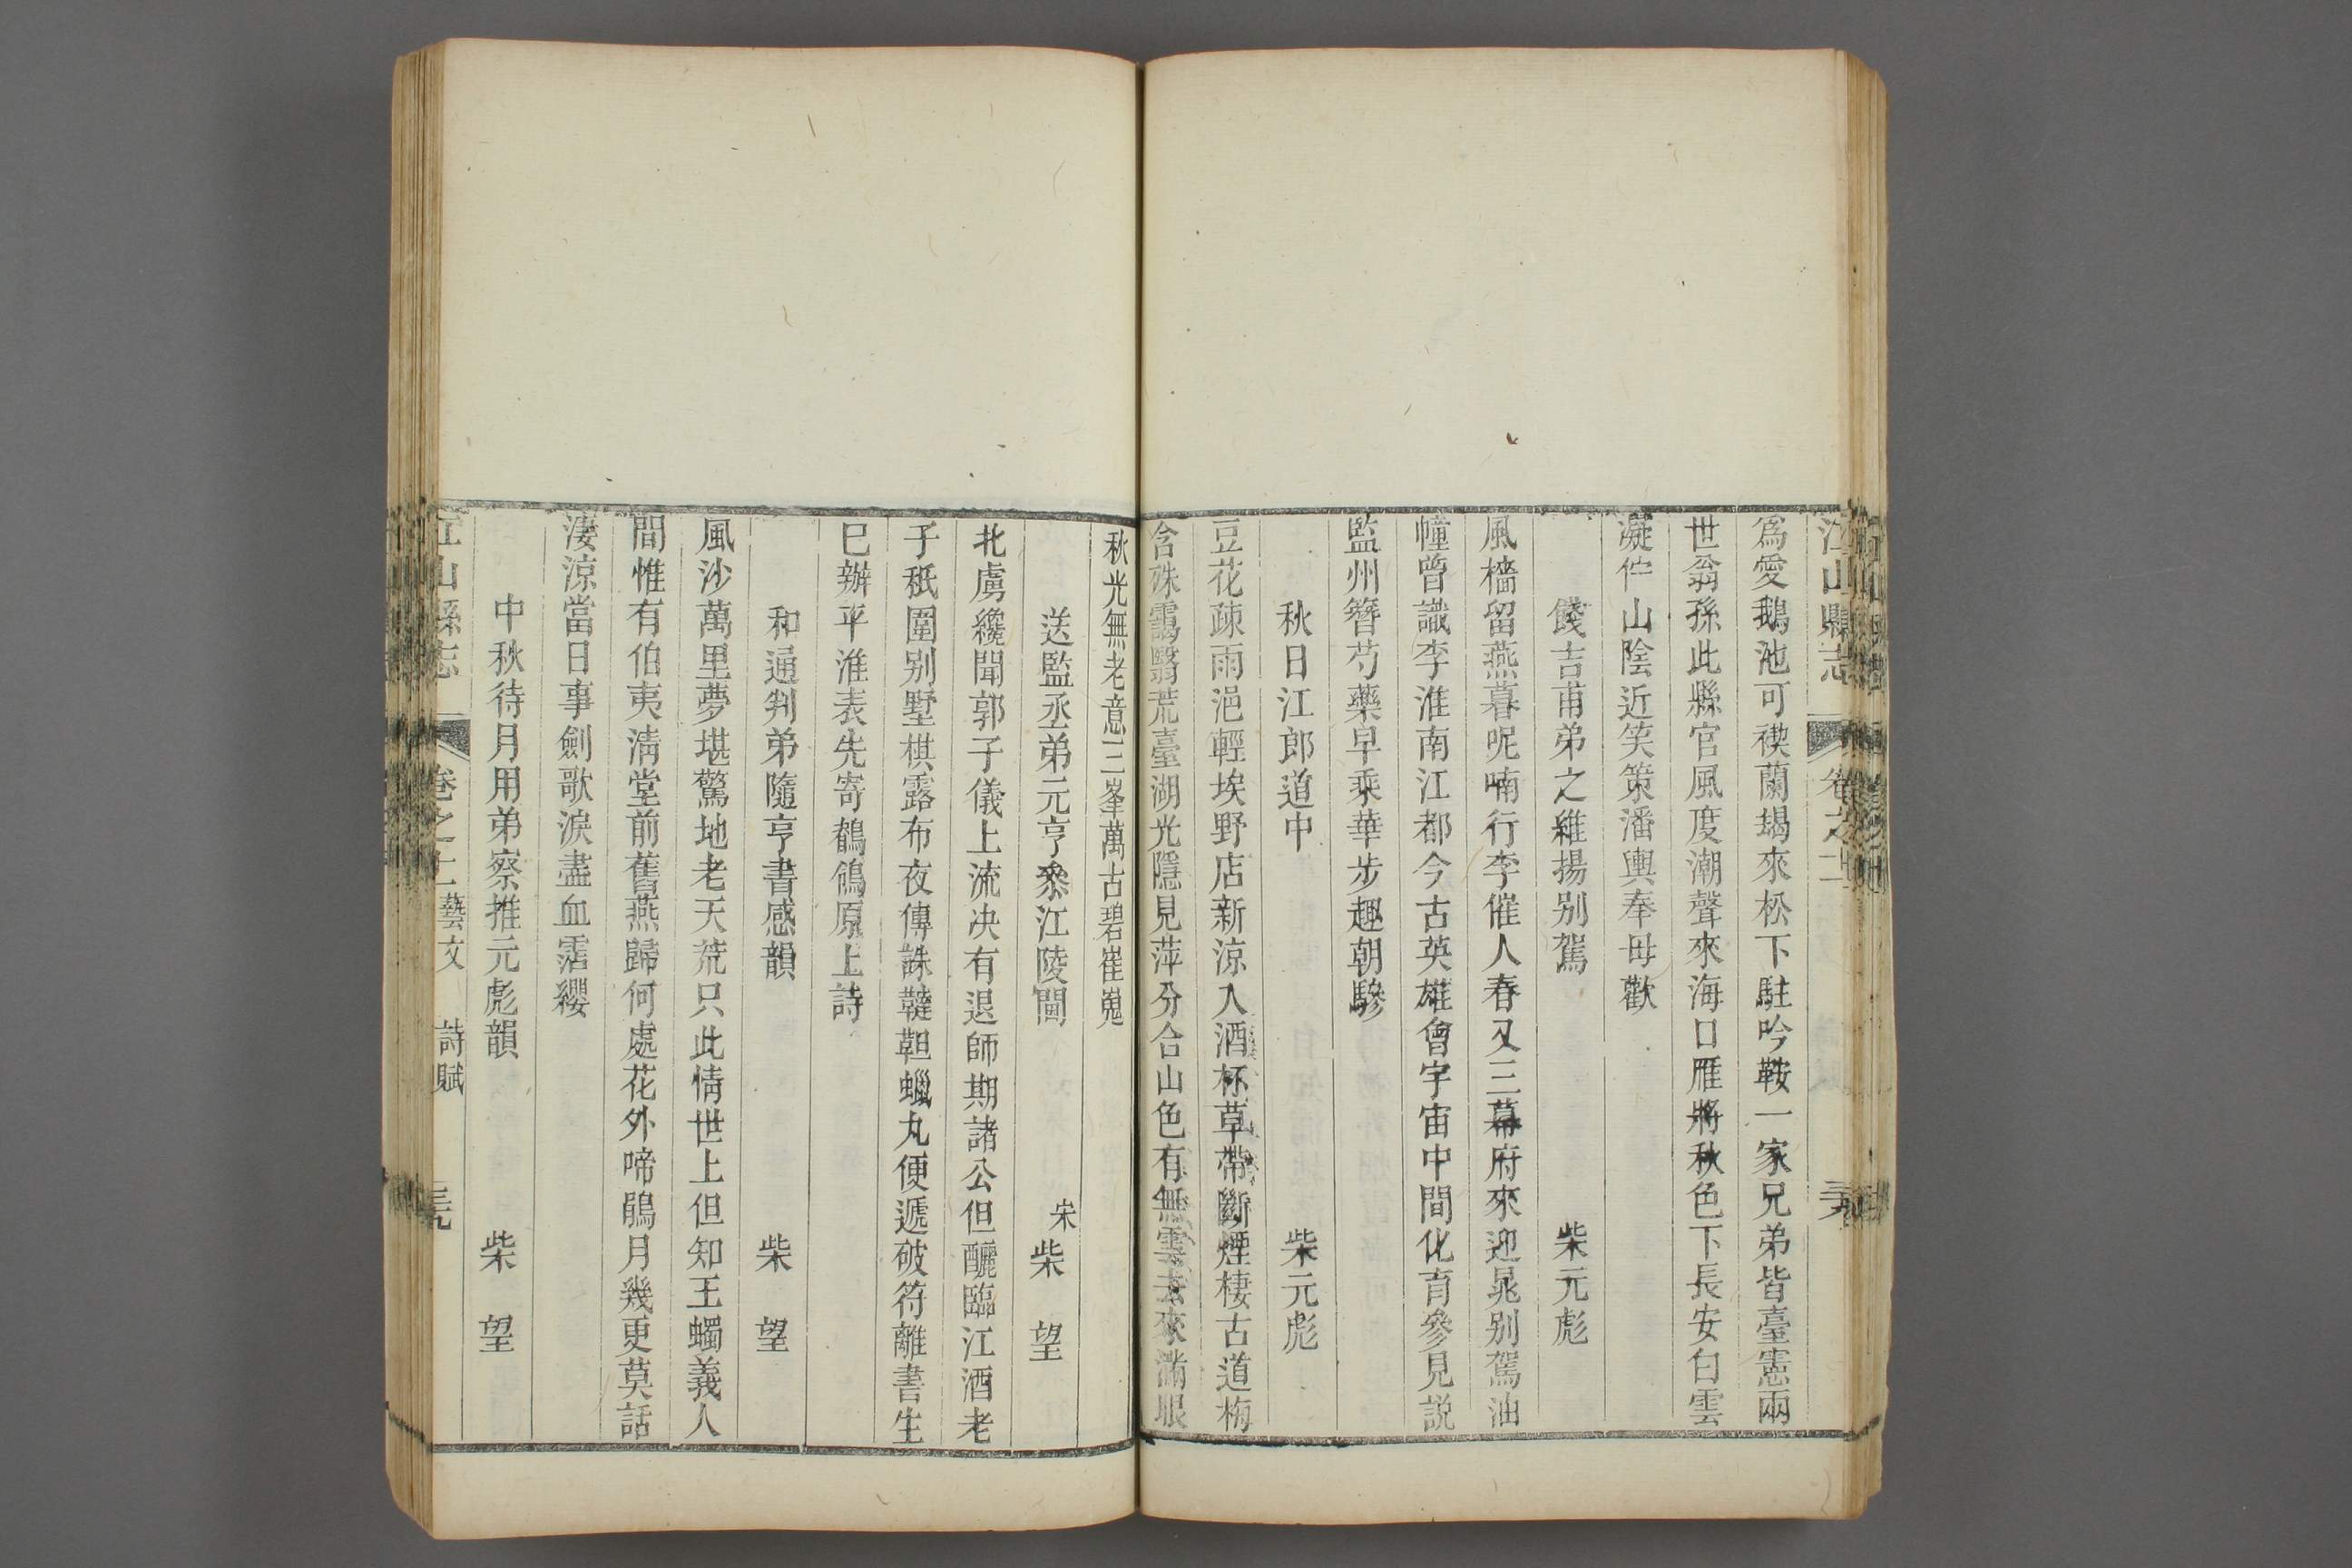 江山縣志 卷之十二
爲愛鵝池可禊蘭朅來松下駐吟鞍一家兄弟皆臺憲兩
世翁孫此縣官風度潮聲來海口雁將秋色下長安白雲
凝伫山陰近笑策潘輿奉母歡
餞吉甫弟之維揚别駕 柴元彪
風檣留燕暮呢喃行李催人春又三幕府來迎晁别駕油
幢曾識李淮南江都今古英雄會宇宙中間化育參見説
監州簪芍藥早乘華步趣朝驂
秋日江郎道中 柴元彪
豆花疎雨浥輕埃野店新涼入酒杯草帶斷煙棲古道梅
含殊靄翳荒臺湖光隱見萍分合山色有無雲去來滿眼
秋光無老意三峯萬古碧崔嵬
送監丞弟元亨叅江陵閫 宋柴 望
北虜纔聞郭子儀上流决有退師期諸公但釃臨江酒老
子秖圍别墅棋露布夜傳誅韃靼蠟丸便遞破符離書生
巳辦平淮表先寄鶺鴒原上詩
和通判弟隨亨書感韻 柴 望
風沙萬里夢堪驚地老天荒只此情世上但知王蠋義人
間惟有伯夷淸堂前舊燕歸何處花外啼鵑月幾更莫話
淒涼當日事劍歌淚盡血霑纓
中秋待月用弟察推元彪韻 柴 望
江山縣志 卷之十二藝文 詩賦 三九